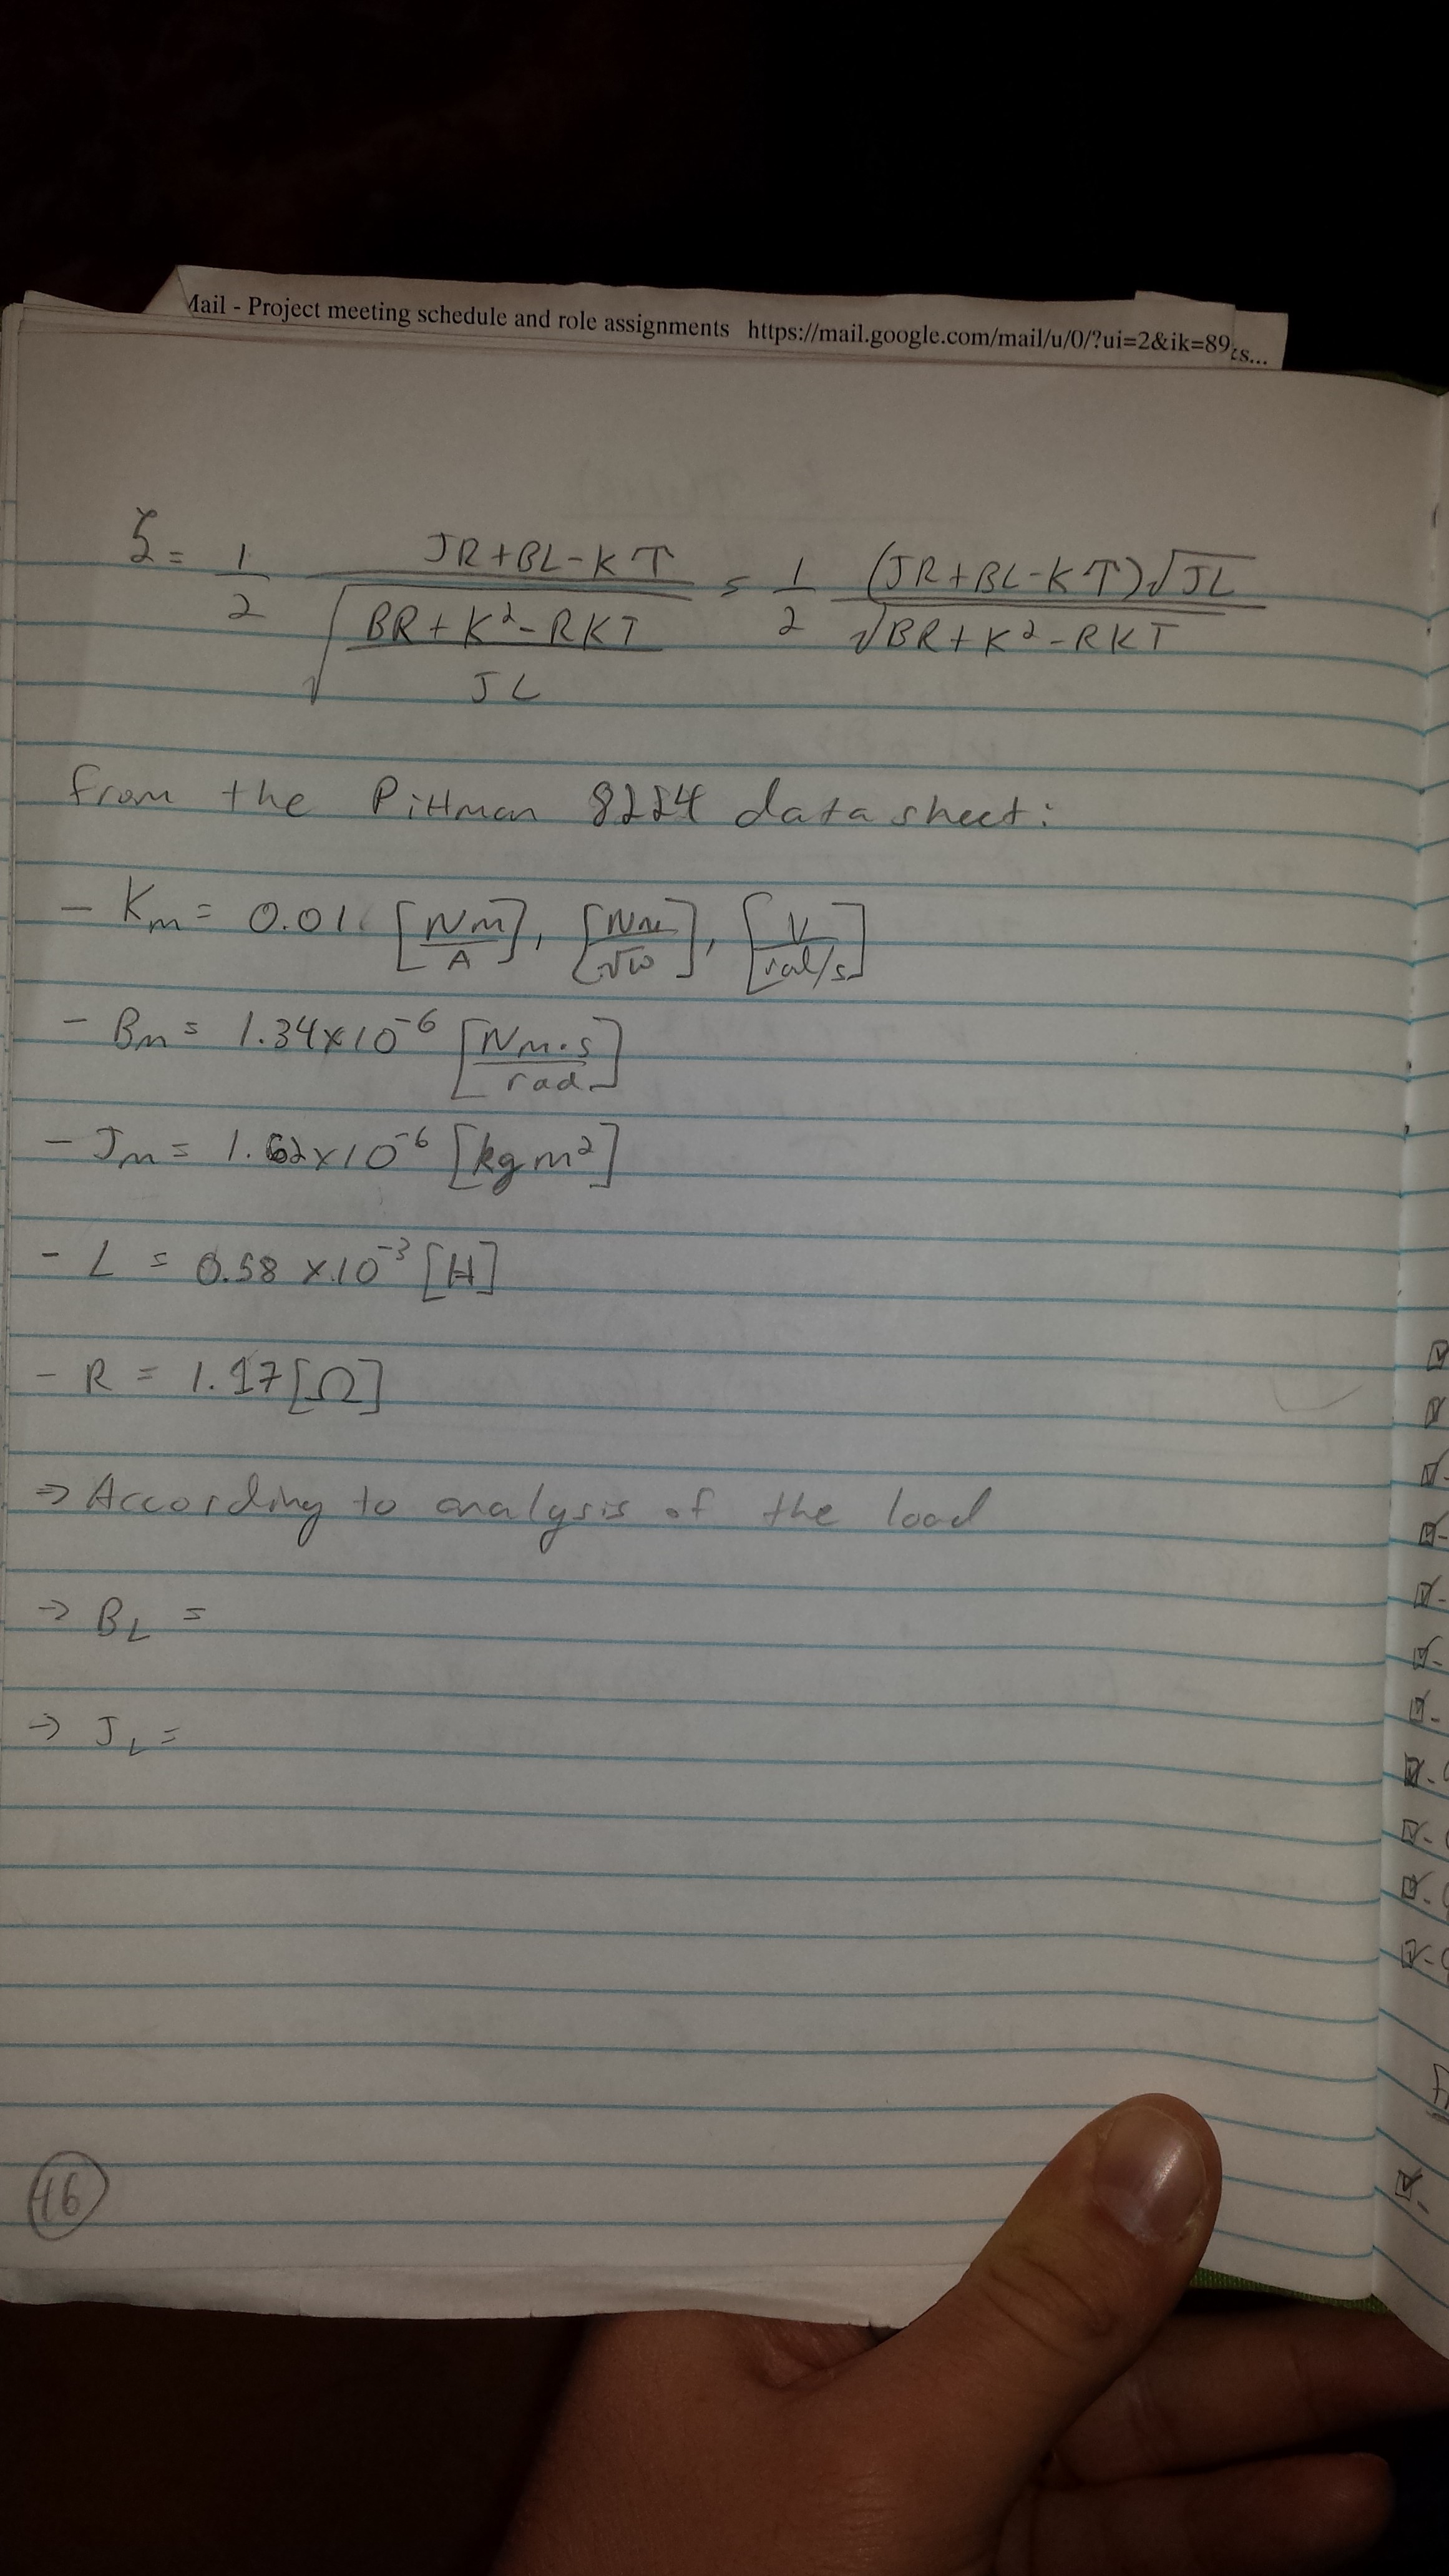 Mail - Project meeting schedule and role assignments https://mail.google.com/mail/u/0/?ui=2&ik=89
ts...
ζ = 1/2 (JR+BL-KT)/√((BR+K²-RKT)/JL) = 1/2 ((JR+BL-KT)√JL)/√(BR+K²-RKT)
from the Pittman 8224 datasheet:
- Km = 0.01 [Nm/A], [Nm/√W], [V/rad/s]
- Bm = 1.34x10⁻⁶ [Nm·s/rad]
- Jm = 1.62x10⁻⁶ [kg m²]
- L = 0.58 x10⁻³ [H]
- R = 1.17 [Ω]
⇒ According to analysis of the load
→ B_L =
→ J_L =
46